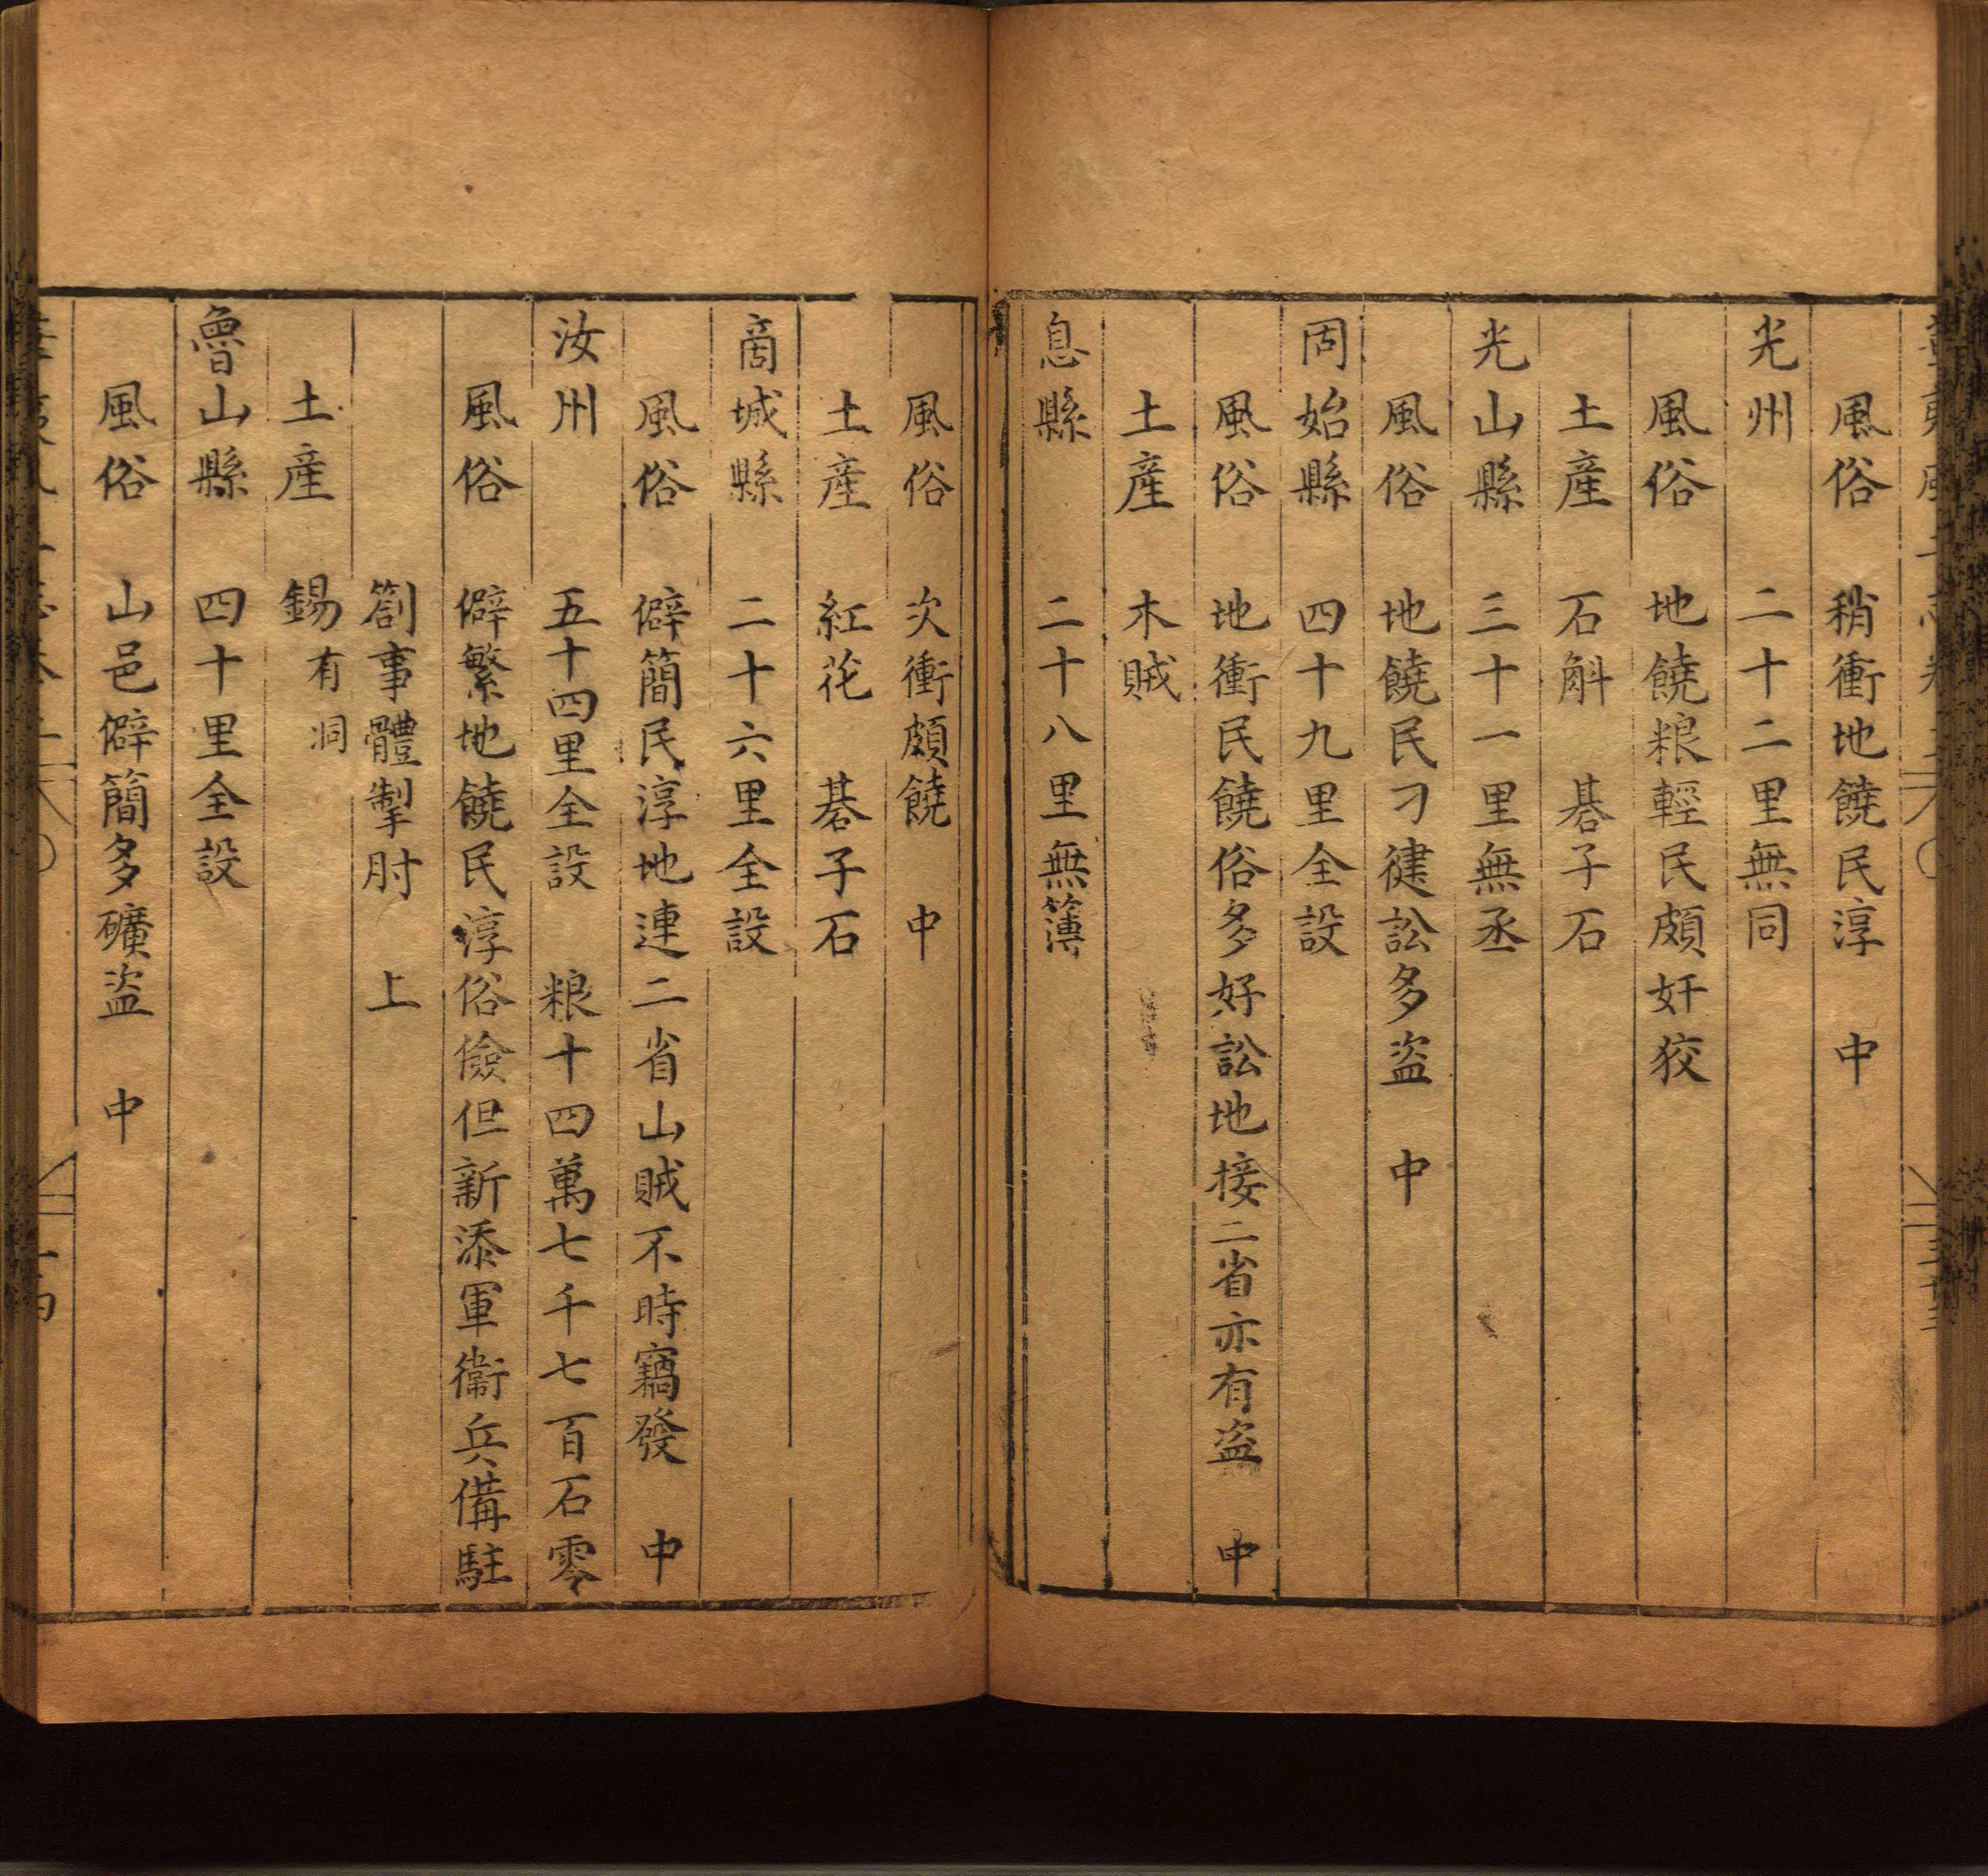 風俗 稍衝地饒民淳 中
光州 二十二里無同
風俗 地饒粮輕民頗奸狡
土產 石斛 碁子石
光山縣 三十一里無丞
風俗 地饒民刁健訟多盜 中
固始縣 四十九里全設
風俗 地衝民饒俗多好訟地接二省亦有盜 中
土產 木賊
息縣 二十八里無簿
風俗 次衝頗饒 中
土產 紅花 碁子石
啇城縣 二十六里全設
風俗 僻簡民淳地連二省山賊不時竊發 中
汝州 五十四里全設 粮十四萬七千七百石零
風俗 僻繁地饒民淳俗儉但新添軍衛兵備駐
劄事體掣肘 上
土產 錫有洞
魯山縣 四十里全設
風俗 山邑僻簡多礦盜 中